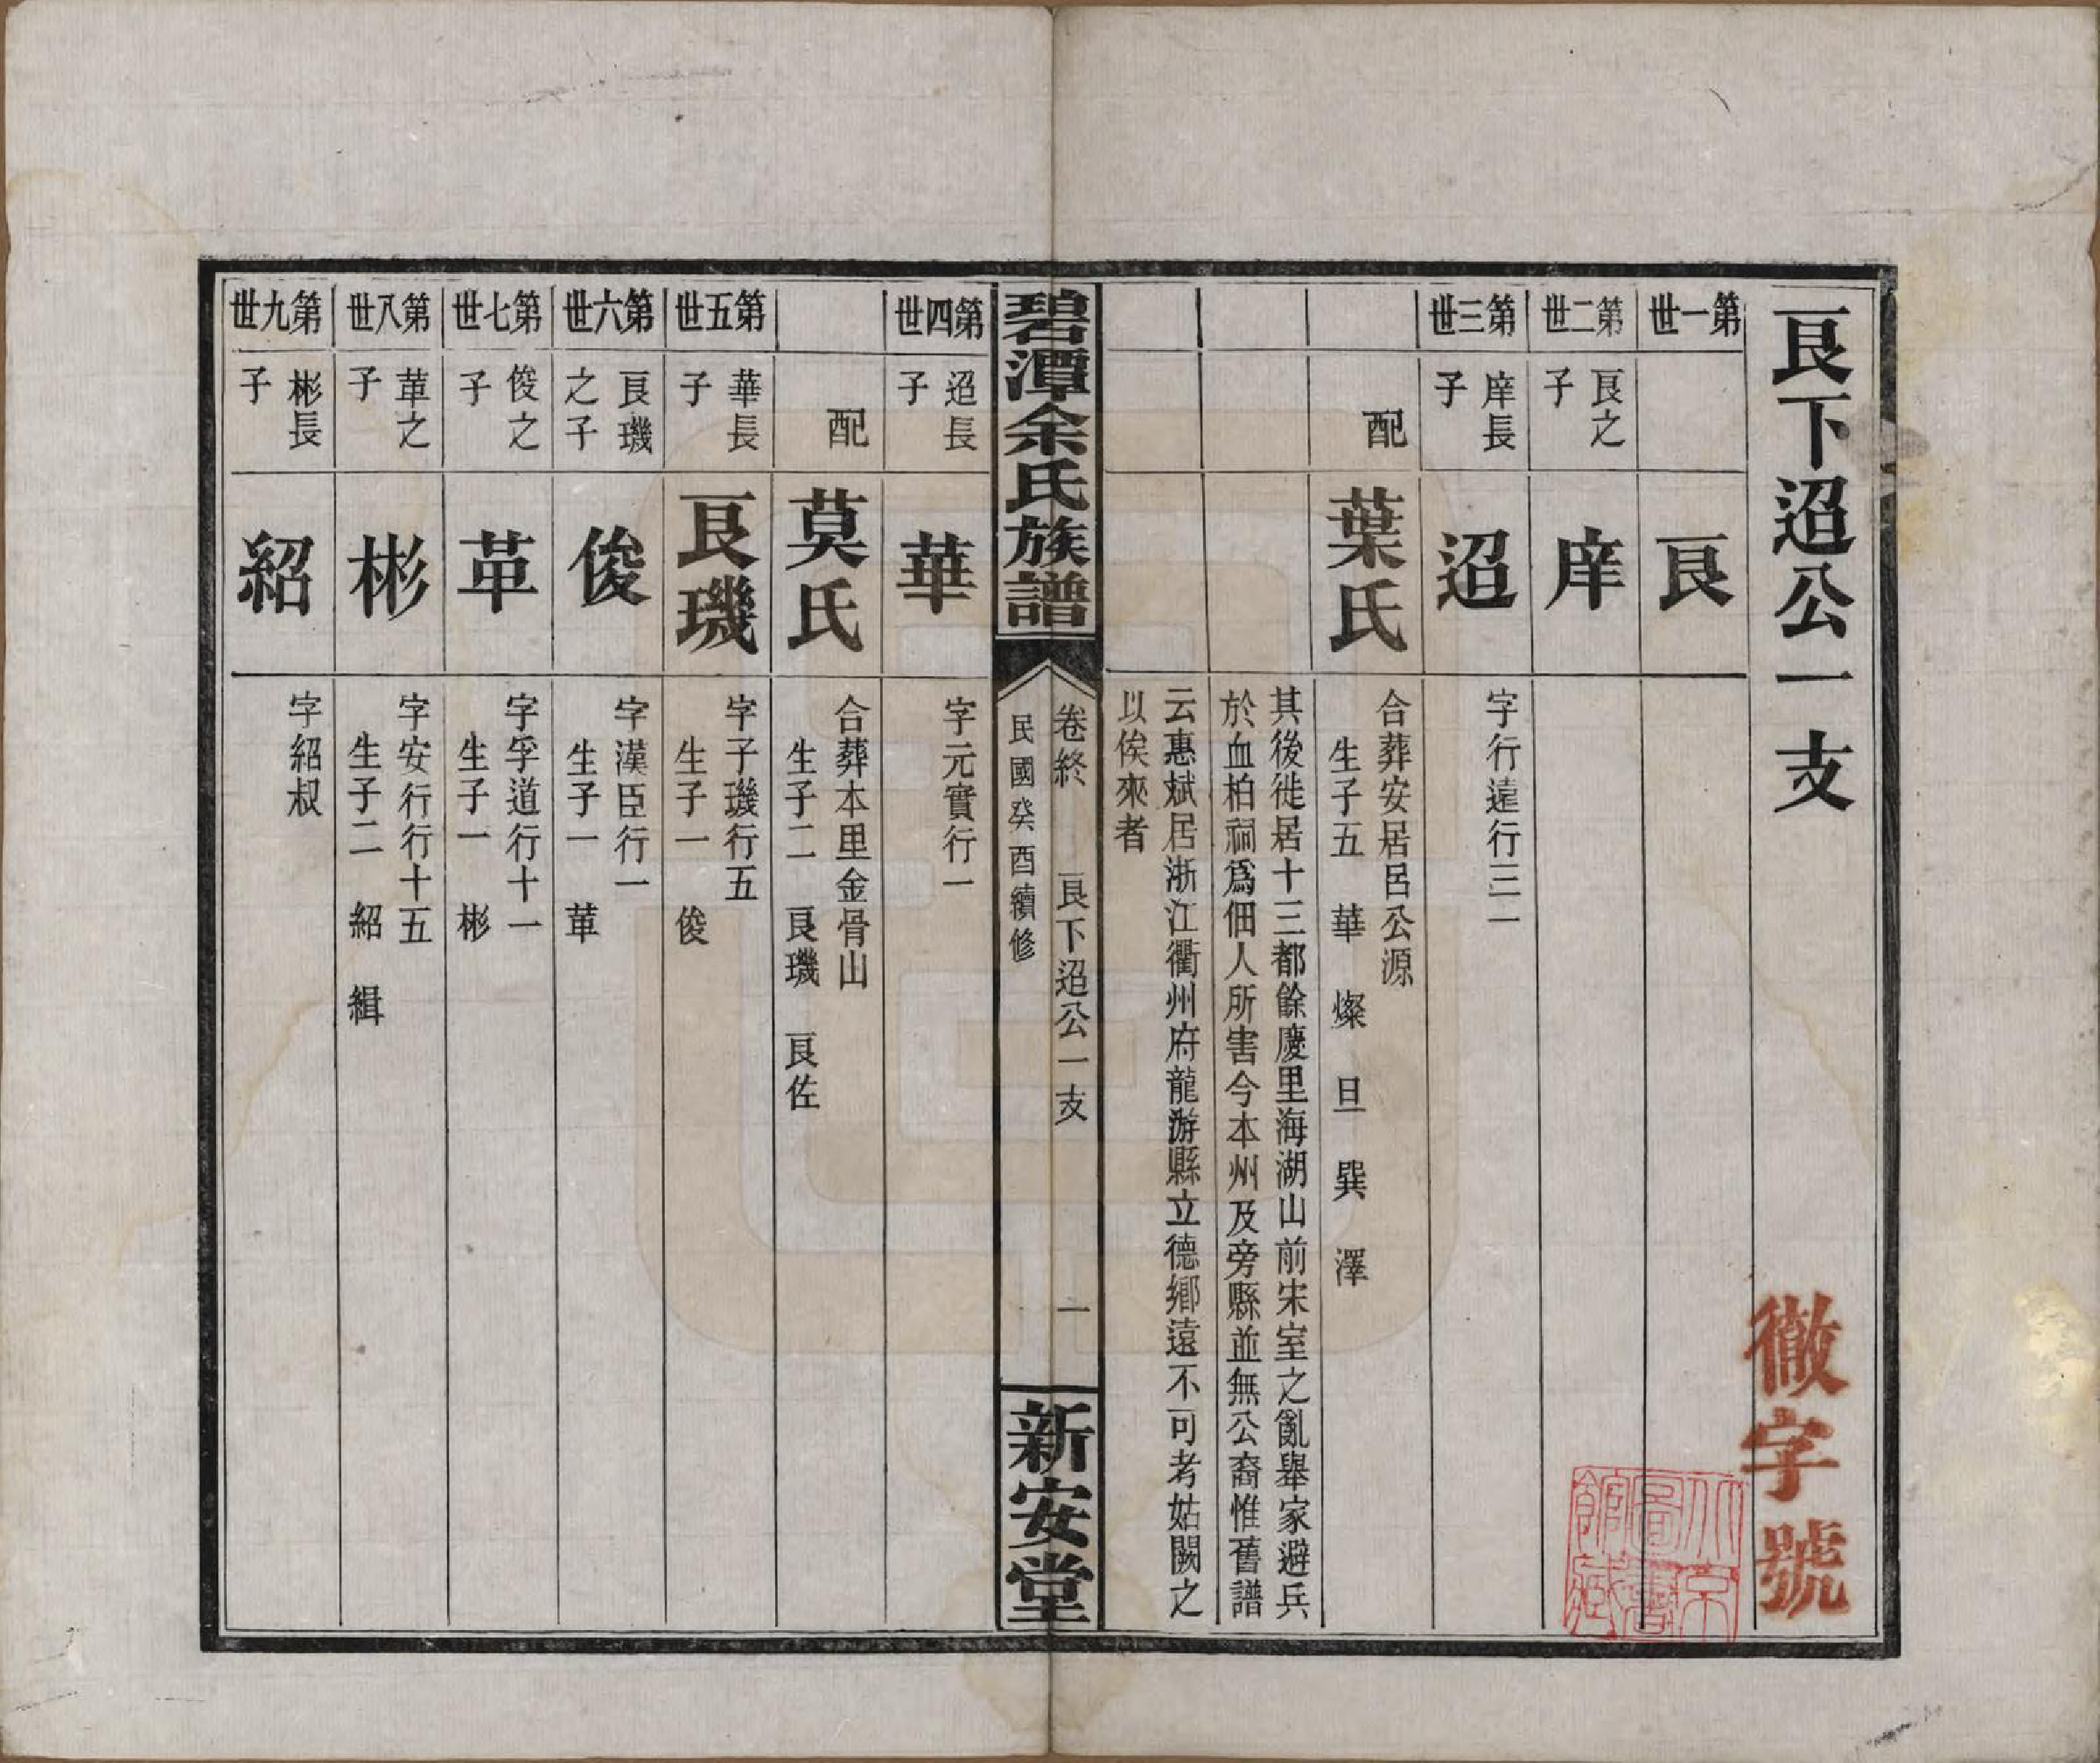 艮下迢公一支
徽字號
北京圖書館藏
第一世
艮
第二世
艮之子
庠
第三世
庠長子
迢
字行遠行三一
配
葉氏
合葬安居呂公源
生子五 華 燦 旦 巽 澤
其後徙居十三都餘慶里海湖山前宋室之亂舉家避兵
於血柏祠爲佃人所害今本州及旁縣並無公裔惟舊譜
云惠斌居浙江衢州府龍游縣立德鄉遠不可考姑闕之
以俟來者
碧潭余氏族譜
卷終 艮下迢公一支 一
民國癸酉續修
新安堂
第四世
迢長子
華
字元實行一
配
莫氏
合葬本里金骨山
生子二 艮璣 艮佐
第五世
華長子
艮璣
字子璣行五
生子一 俊
第六世
艮璣之子
俊
字漢臣行一
生子一 革
第七世
俊之子
革
字孚道行十一
生子一 彬
第八世
革之子
彬
字安行行十五
生子二 紹 緝
第九世
彬長子
紹
字紹叔